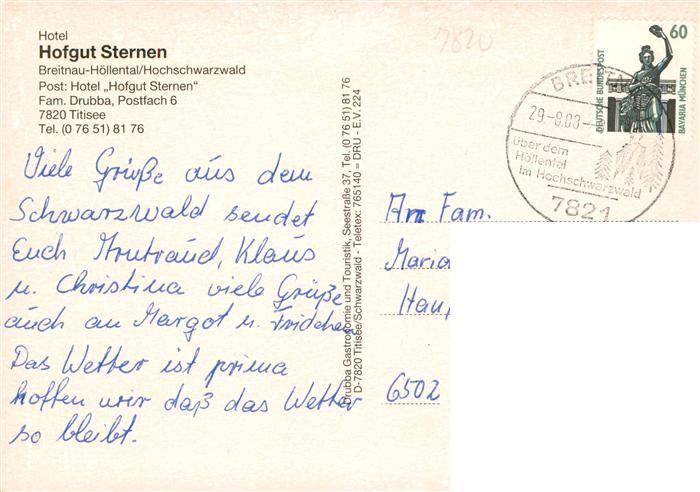 Hotel
Hofgut Sternen
Breitnau-Höllental/Hochschwarzwald
Post: Hotel „Hofgut Sternen"
Fam. Drubba, Postfach 6
7820 Titisee
Tel. (0 76 51) 81 76
7820
60
DEUTSCHE BUNDESPOST
BAVARIA MÜNCHEN
29-9.88
über dem
Höllental
im Hochschwarzwald
7821
Viele Grüße aus dem
Schwarzwald sendet
Euch Klaus
u. Christina viele Grüße
auch an Margot u. Fridchen
Das Wetter ist prima
hoffen wir daß das Wetter
so bleibt.
Drubba Gastronomie und Touristik, Seestraße 37, Tel. (0 76 51) 81 76
D-7820 Titisee/Schwarzwald - Teletex: 765140 = DRU - E.V. 224
An Fam.
Maria
Hau
6502